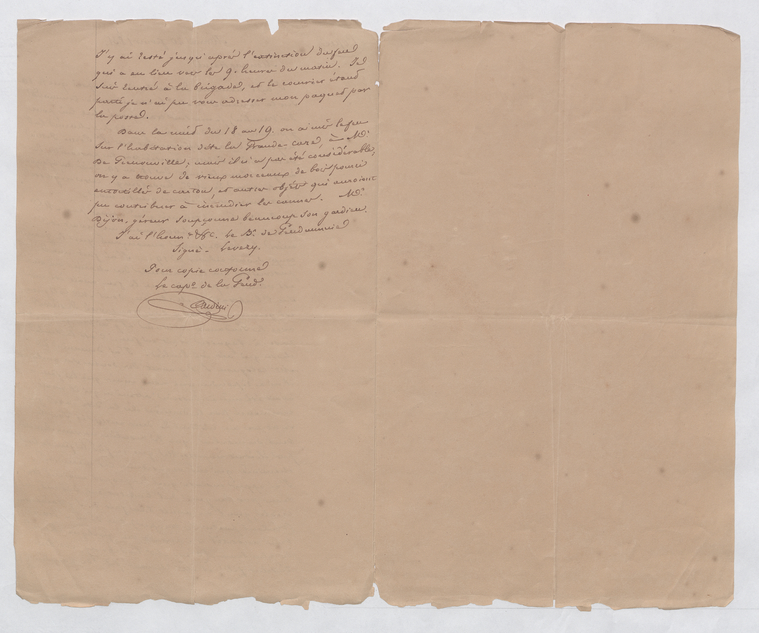 J'y ai resté jusqu'après l'extinction du feu
qui a eu lieu vers les 9 heures du matin. Je
suis rentré à la brigade, et le courier étant
parti je n'ai pu vous adresser mon paquet par
la poste.
Dans la nuit du 18 au 19. on a mis le feu
sur l'habitation dite la Grande-case, à Mr.
De mais il n'a pas été considérable,
on y a trouvé de vieux morceaux de bois pourri
entortillé de coton, et autres objets qui auraient
pu contribuer à incendier les cannes. Mr.
Dijon, géreur soupçonne beaucoup son gardien.
J'ai l'honr. &c. le Br. de Gendarmerie
Signé -
Pour copie conforme
Le capne. de la Gend.